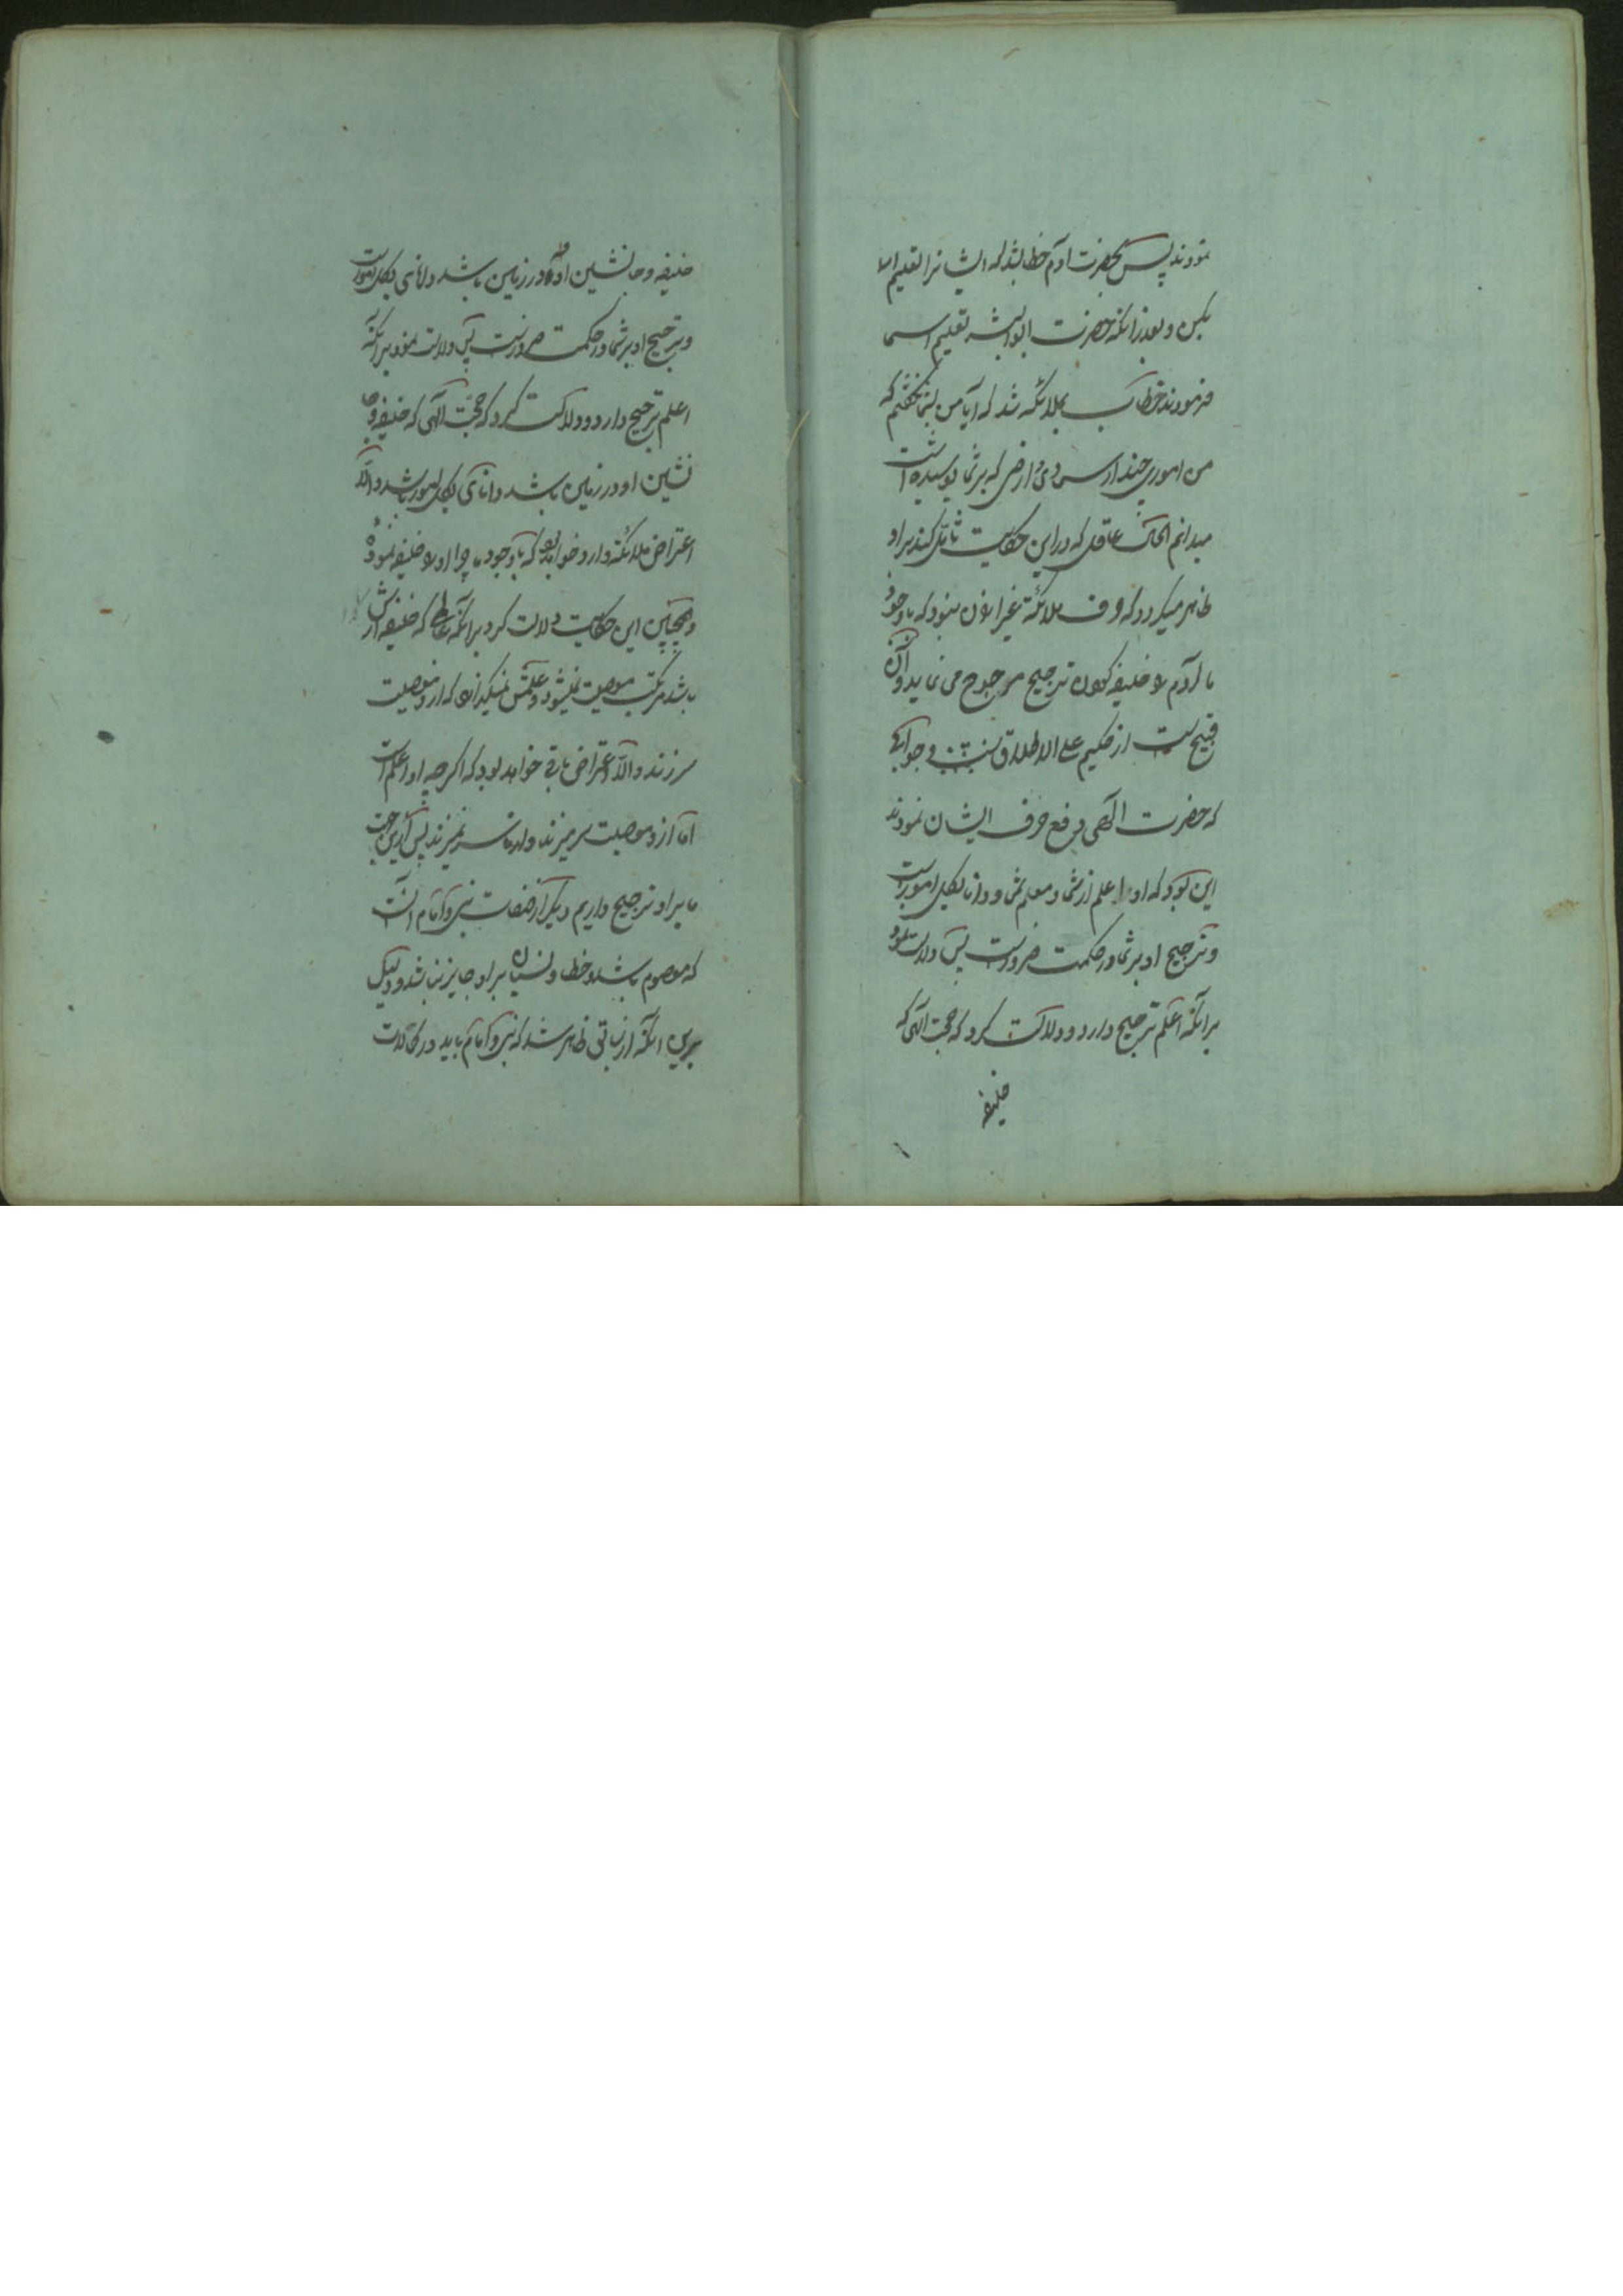 نمودند پس بحضرت آدم خطاب شد که ایشانرا تعلیم اسما
بکن و بعد از آنکه حضرت ابوالبشر تعلیم اسما
فرمودند خطاب بملائکه شد که آیا من بشما نگفتم که
من اموری چند از سموی و ارضی که بر شما پوشیده است
میدانم الحال عاقلی که در این حکایت تامل کند بر او
ظاهر میگردد که حرف ملائکه غیر ازین نبود که با وجود
ما آدم را خلیفه کردن ترجیح مرجوح می نماید و آن
قبیح است از حکیم علی الاطلاق و جوابی
که حضرت الهی در رفع حرف ایشان نمودند
این بود که او اعلم از شما و معلم شما و دانا بکل امور است
و ترجیح او بر شما در حکمت ضرور است پس دلالت نمود
بر آنکه اعلم ترجیح دارد و دلالت کرد که حجت الهی که
خلیفه
خلیفه و جانشین او در زمین باشد دانای بکل امور است
و ترجیح او بر شما در حکمت ضرور است پس دلالت نمود بر آنکه
اعلم ترجیح دارد و دلالت کرد که حجت الهی که خلیفه و جا
نشین او در زمین باشد دانای بکل امور باشد و الا
اعتراض ملائکه وارد خواهد بود که با وجود ما چرا او را خلیفه نموده
و همچنین این حکایت دلالت کرد بر آنکه که خلیفه ارض
باشد مرتکب معصیت نمیشود و علمش نمیگذارد که ازو معصیت
سر زند و الا اعتراض باقی خواهد بود که اگر چه او اعلم است
اما ازو معصیت سر میزند و از ما سر نمیزند پس ازین جهت
ما بر او ترجیح داریم دیگر از صفات نبی و امام آنست
که معصوم باشد و خطا و نسیان بر او جایز نباشد و دلیل
برین آنکه از سابق ظاهر شد که نبی و امام باید در کمالات